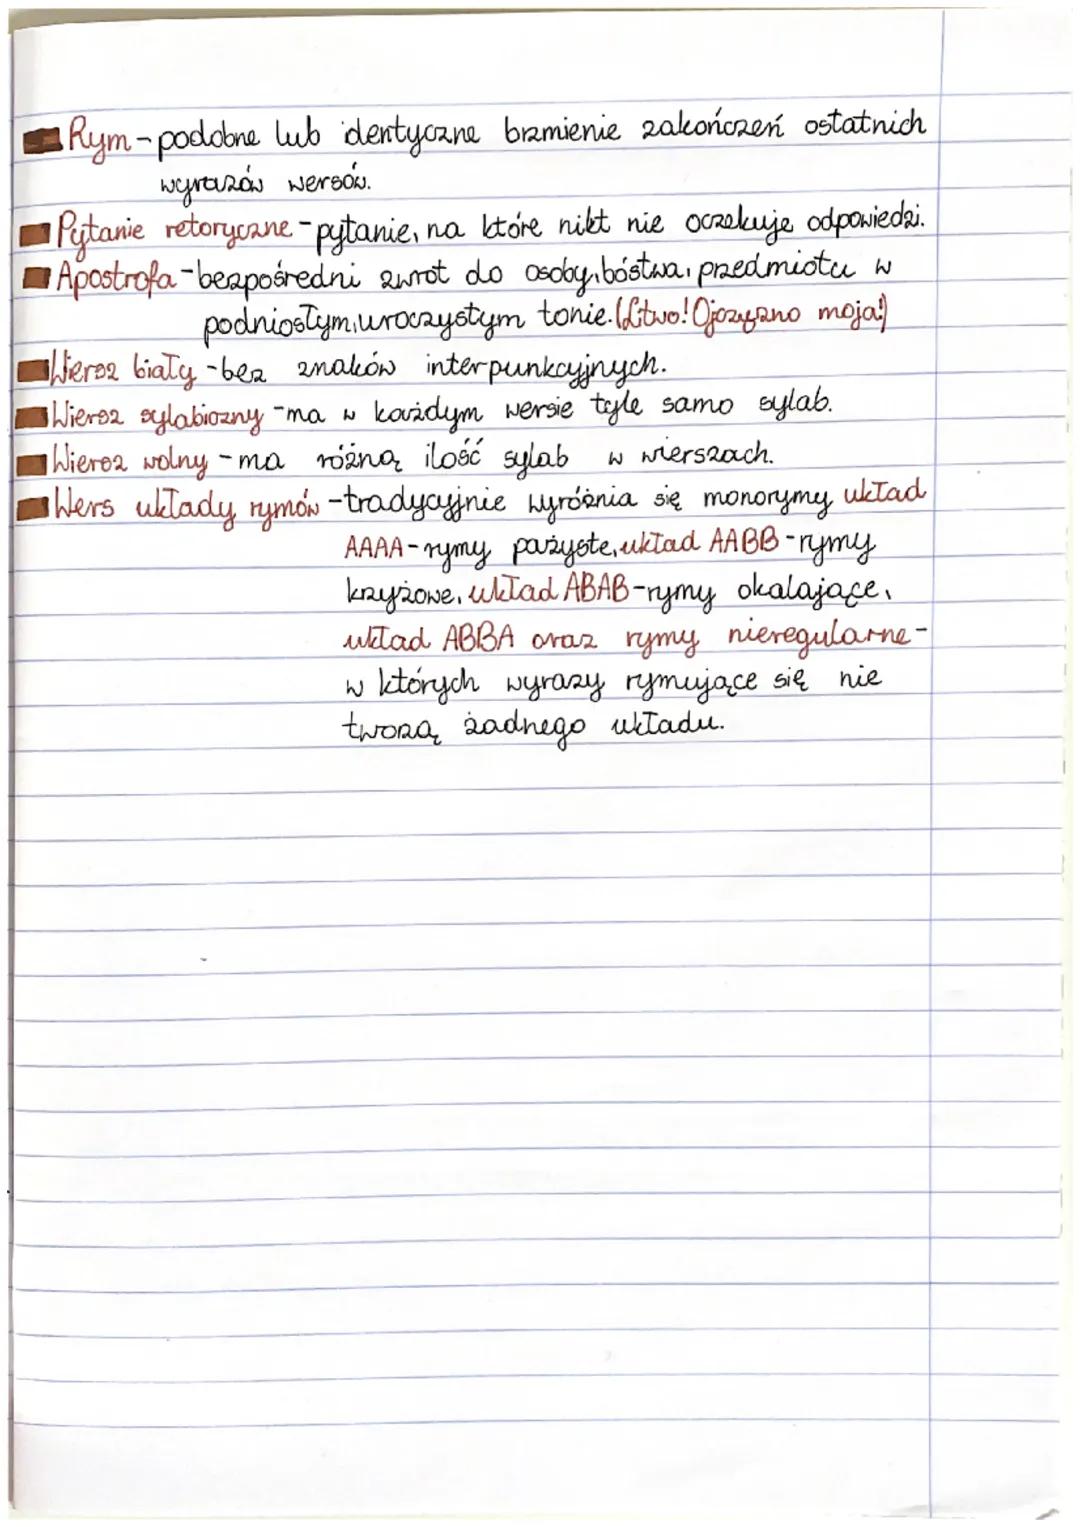 Rym - podobne lub identyczne brzmienie zakończeń ostatnich
wyrazów wersów.
Pytanie retoryczne - pytanie, na które nikt nie oczekuje odpowiedzi.
Apostrofa - bezpośredni zwrot do osoby, bóstwa, przedmiotu w
podniosłym, uroczystym tonie. (Litwo! Ojczyzno moja!)
Wiersz biały - bez znaków interpunkcyjnych.
Wiersz sylabiczny - ma w każdym wersie tyle samo sylab.
Wiersz wolny - ma różną ilość sylab w wierszach.
Wers układy rymów - tradycyjnie wyróżnia się monorymy układ
AAAA - rymy parzyste, układ AABB - rymy
krzyżowe, układ ABAB - rymy okalające,
układ ABBA oraz rymy nieregularne -
w których wyrazy rymujące się nie
tworzą żadnego układu.